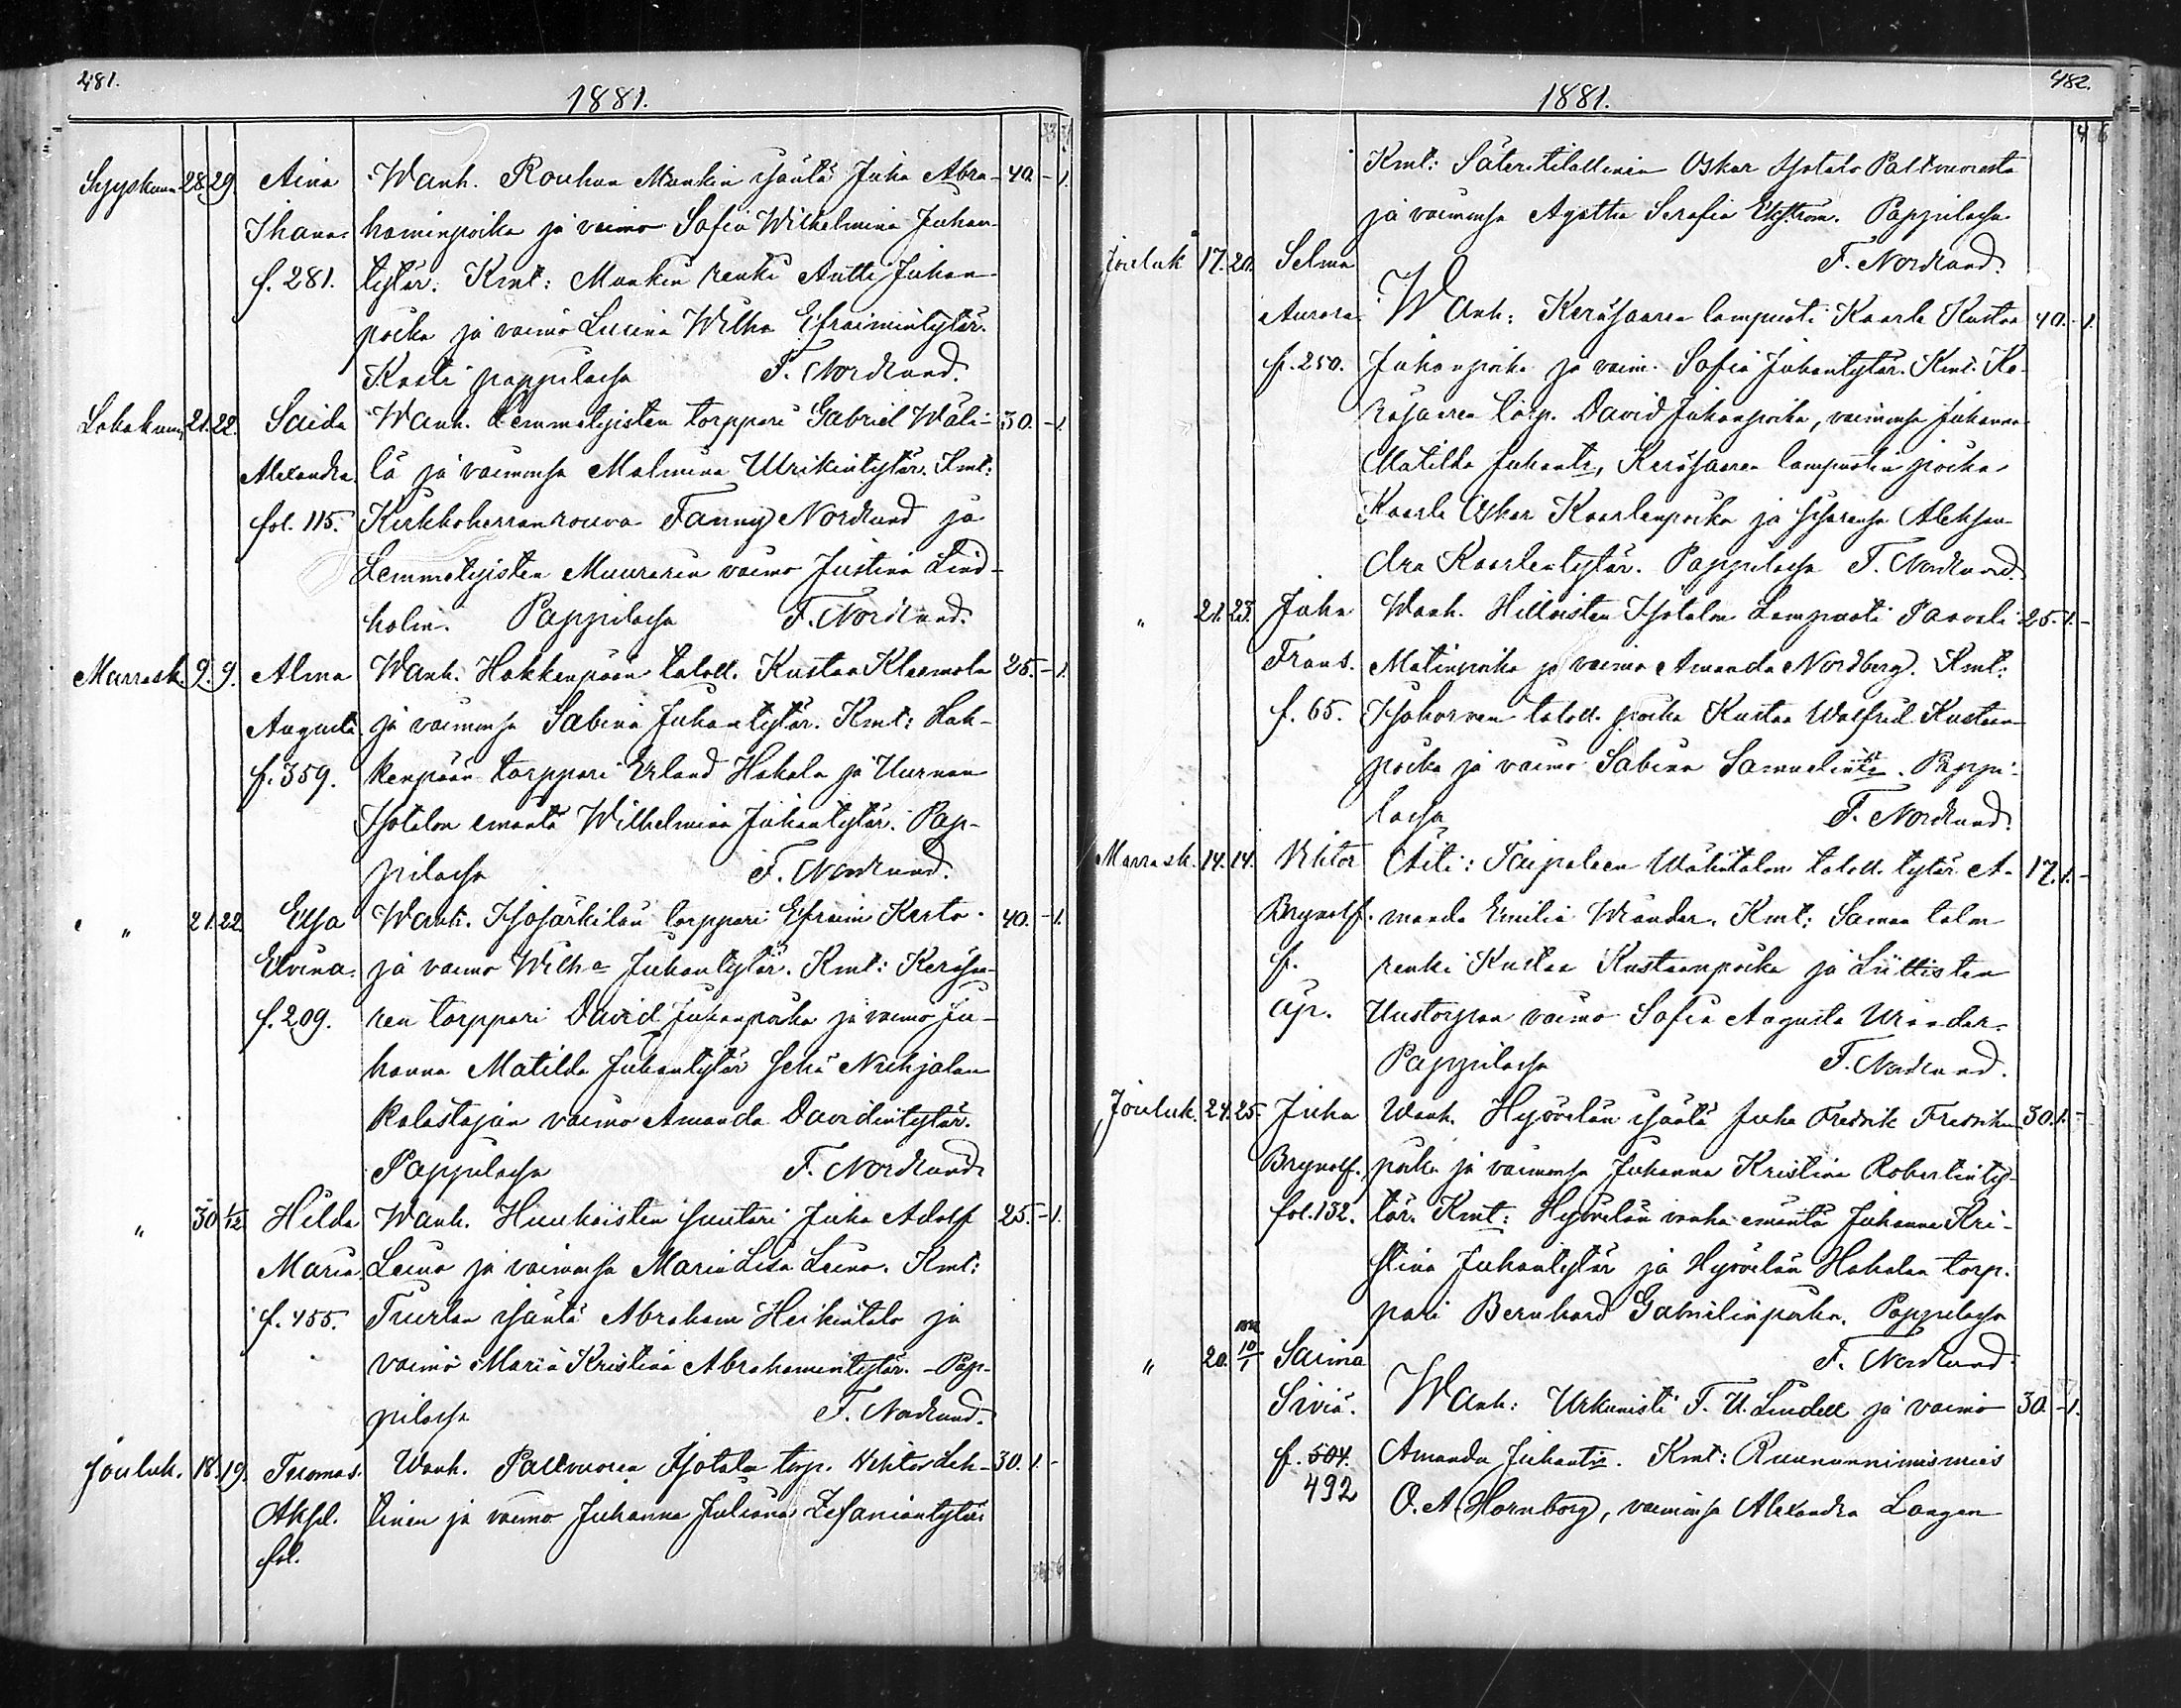 481.
1881.
Syyskuun 28. 29. Aina Wanh. Rouhun Mankin isäntä Juha Abra- 40. - 1.
Ihana. haminpoika ja vaimo Sofia Wilhelmina Juhan-
f. 281. tytär. Kmt: Mankin renki Antti Juhan-
poika ja vaimo Lucina Wilha Efraimintytär.
Kasti pappilassa F. Nordlund.
Lokakuun 21. 22. Saida Wanh. Lemmetyisten torppari Gabriel Wäli- 30. - 1.
Alexandra lä ja vaimonsa Malmina Ulrikintytär. Kmt:
fol. 115. Kirkkoherran rouva Fanny Nordlund ja
Lemmetyisten Muurarin vaimo Justina Lind-
holm. Pappilassa F. Nordlund.
Marrask. 9. 9. Alma Wanh. Hakkenpään taloll. Kustaa Klaamola 25. - 1.
Augusta ja vaimonsa Sabina Juhantytär. Kmt: Hak-
f. 359. kenpään torppari Erland Hakala ja Uurnan
Isotalon emäntä Wilhelmina Juhantytär. Pap-
pilassa F. Nordlund.
" 21. 22. Elsa Wanh. Isosärkilän torppari Efraim Kerto. 40. - 1.
Elvina. ja vaimo Wilh:a Juhantytär. Kmt: Keräsaa-
f. 209. ren torppari David Juhanpoika ja vaimo Ju-
hanna Matilda Juhantytär sekä Nuhjalan
kalastajan vaimo Amanda Davidintytär.
Pappilassa F. Nordlund.
" 30 1/12. Hilda Wanh. Huukaisten suutari Juha Adolf 25. - 1.
Maria. Leino ja vaimonsa Maria Lisa Leino. Kmt:
f. 455. Tuurlan isäntä Abraham Heikintalo ja
vaimo Maria Kristina Abrahamintytär. Pap-
pilassa F. Nordlund.
Jouluk. 18. 19. Tuomas. Wanh. Palsvuoren Isotalon torp. Vihtor Leh- 30. 1. -
Aksel. tinen ja vaimo Juhanna Juliana Zefaniantytär
fol.
482.
1881.
Kmt: Säteritilallinen Oskar Isotalo Palsvuoresta
ja vaimonsa Agatha Serafia Ekström. Pappilassa
Jouluk 17. 20. Selma F. Nordlund.
Aurora. Wanh: Keräsaaren lampuoti Kaarle Kustaa 40. - 1.
f. 250. Juhanpoika ja vaim. Sofia Juhantytär. Kmt: Ke-
räsaaren torp. David Juhanpoika, vaimonsa Juhanna
Matilda Juhantr, Keräsaaren lampuotin poika
Kaarle Oskar Kaarlenpoika ja sisarensa Aleksan-
dra Kaarlentytär. Pappilassa F. Nordlund.
" 21. 23. Juha Wanh. Hilloisten Isotalon Lampuoti Paavali 25. 1. -
Frans. Matinpoika ja vaimo Amanda Nordberg. Kmt:
f. 65. Isokorven taloll. poika Kustaa Walfrid Kustaan
poika ja vaimo Sabina Samuelintr. Pappi-
lassa F. Nordlund.
Marrask. 14. 14. Viktor Äiti: Taipaleen Wähätalon taloll. tytär A- 17. 1. -
Brynolf. manda Emilia Wrander. Kmt: Saman talon
f. renki Kustaa Kustaanpoika ja Liittisten
äp. Uustorpan vaimo Sofia Augusta Urander.
Pappilassa F. Nordlund.
Jouluk. 24. 25. Juha Wanh. Hyövelän isäntä Juha Fredrik Fredrikin 30. 1. -
Brynolf. poika ja vaimonsa Juhanna Kristina Robertinty-
fol. 132. tär. Kmt: Hyövelän vanha emäntä Juhanna Kri-
stina Juhantytär ja Hyövelän Hakalan torp-
pari Bernhard Gabrielinpoika. Pappilassa
" 20. 10/1 Saima F. Nordlund.
Siviä. Wanh: Urkunisti F. U. Lindell ja vaimo 30. - 1.
f. 504. Amanda Juhantr. Kmt: Ruununnimismies
492 O. A. Hornborg, vaimonsa Alexandra Langen